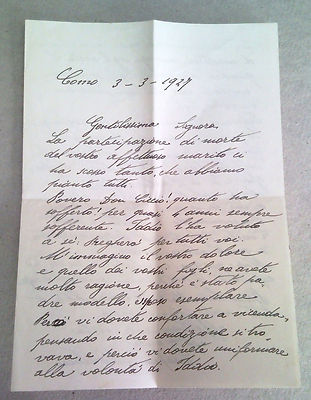 Como 3-3-1927
Gentilissima Signora,
La partecipazione di morte
del vostro affettuoso marito ci
ha scosso tanto, che abbiamo
pianto tutti.
Povero Don Ciccio! quanto ha
sofferto! per quasi 4 anni sempre
sofferente. Iddio l'ha voluto
a sè. Pregherà per tutti voi.
M'immagino il vostro dolore
e quello dei vostri figli, ne avete
molto ragione, perchè è stato pa
dre modello, sposo esemplare
Perciò vi dovete confortare a vicenda,
pensando in che condizione si tro-
vava, e perciò vi dovete uniformare
alla volontà di Iddio.